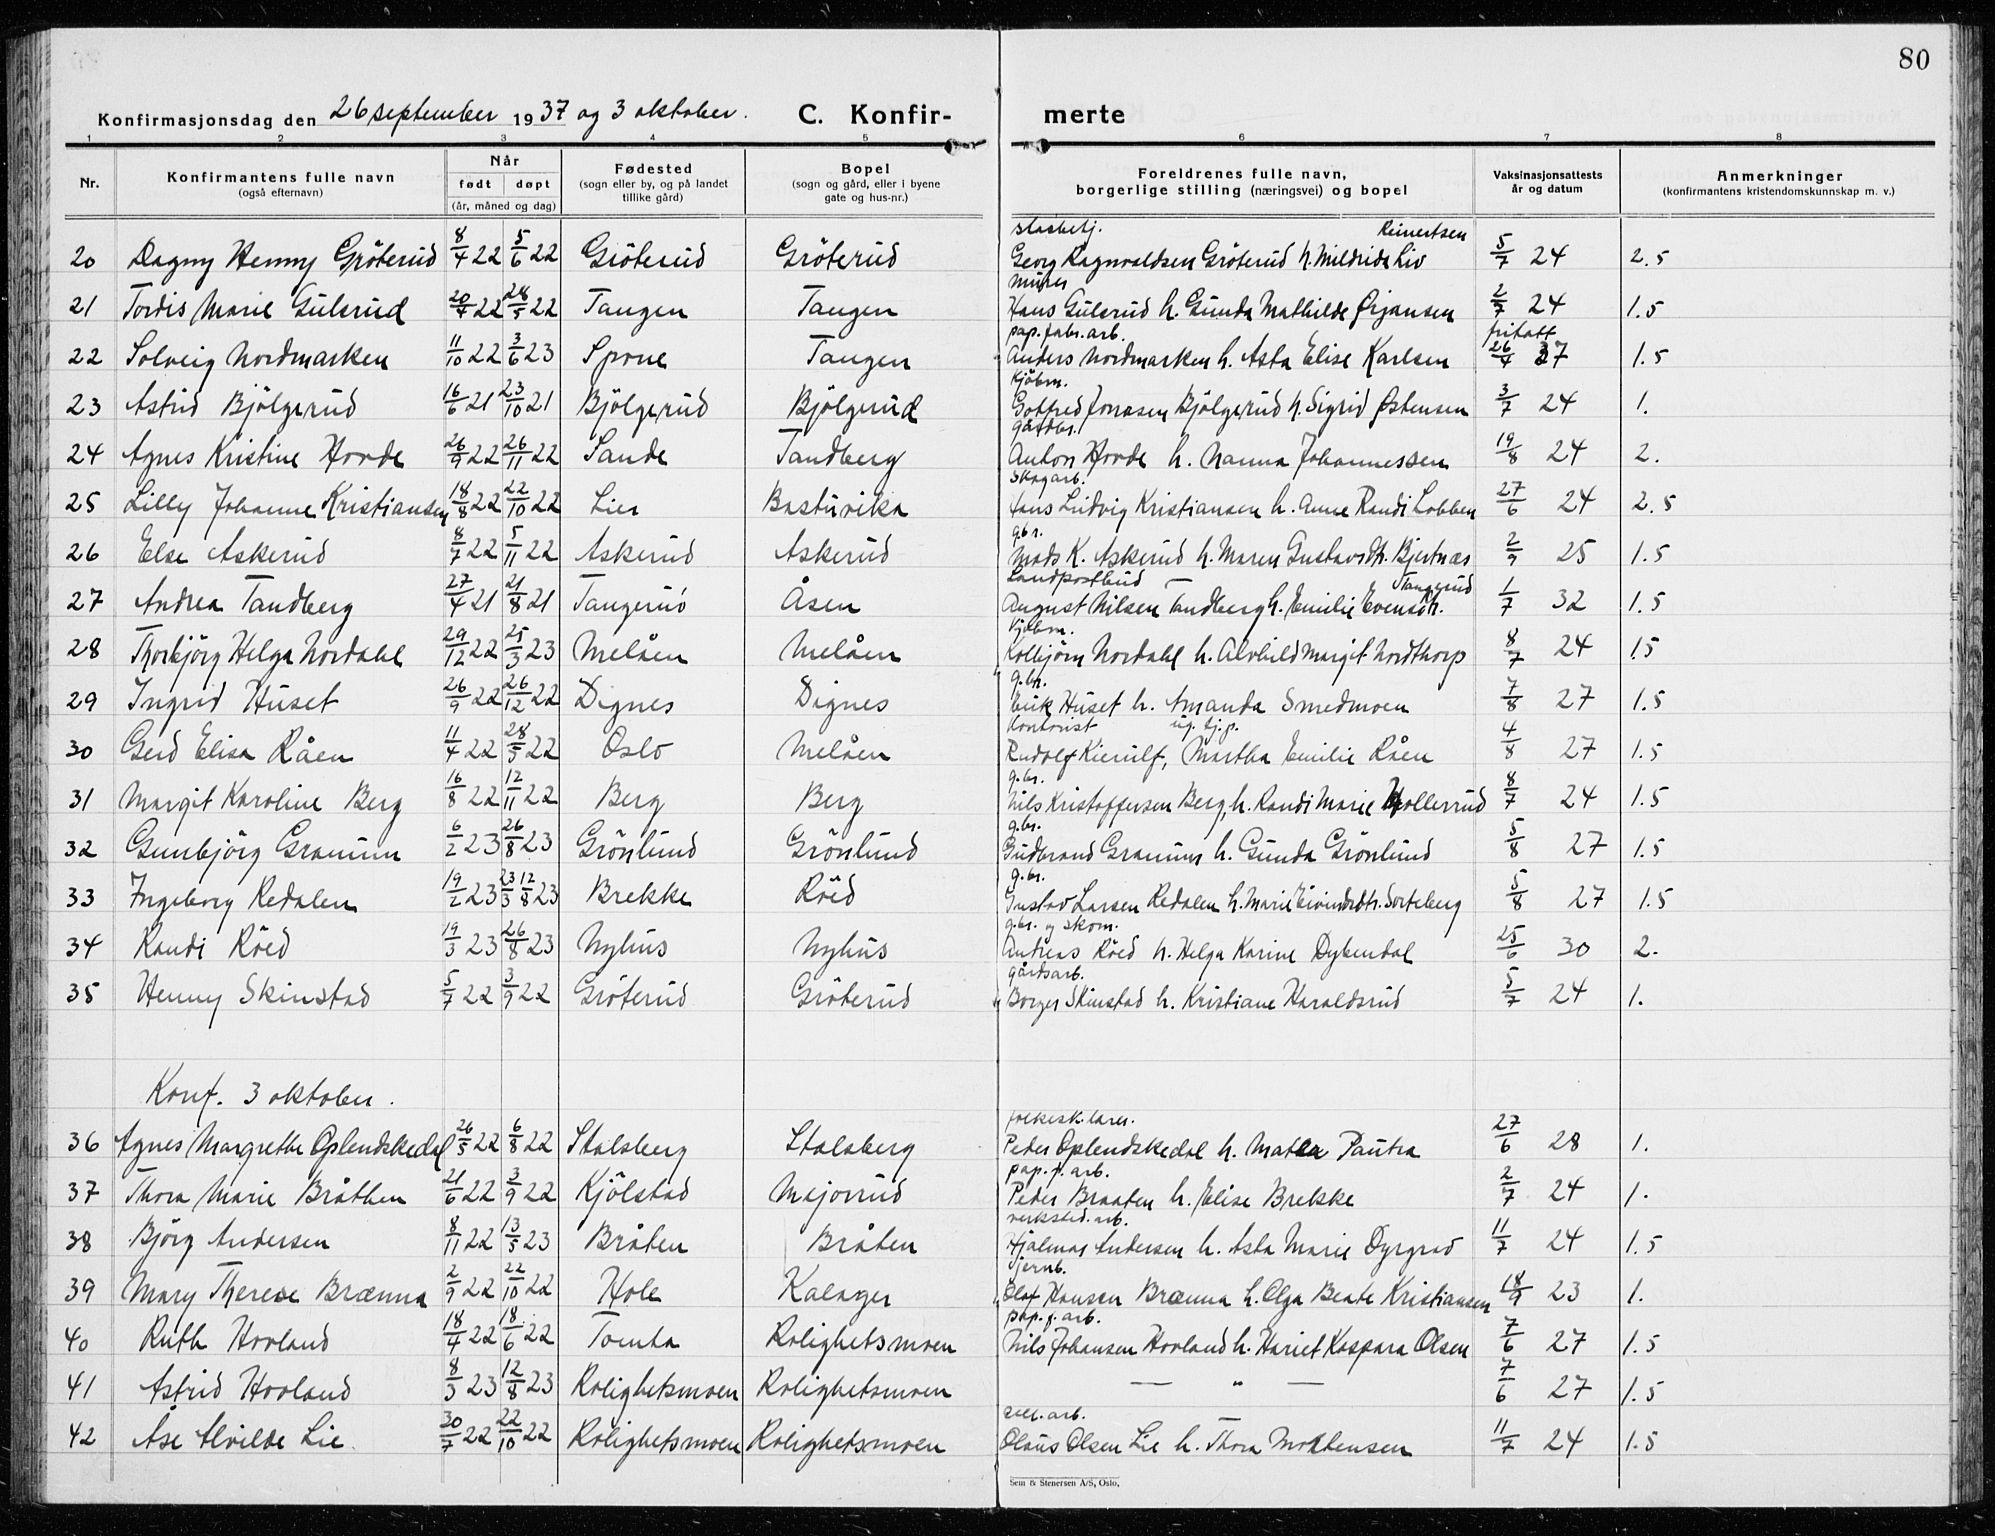 80
Konfirmasjonsdag den 26 september 1937 og 3 oktober. C. Konfir- merte
1 2 3 4 5 6 7 8
Nr. Konfirmantens fulle navn (også efternavn) Når født døpt (år, måned og dag) Fødested (sogn eller by, og på landet tillike gård) Bopel (sogn og gård, eller i byene gate og hus-nr.) Foreldrenes fulle navn, borgerlige stilling (næringsvei) og bopel Vaksinasjonsattests år og datum Anmerkninger (konfirmantens kristendomskunnskap m. v.)
Reinertsen
20 Dagny Henny Gröterud 8/4 22 5/6 22 Gröterud Gröterud Georg Ragnvaldsen Gröterud h. Mildride Liv 5/7 24 2.5
murer
21 Tordis Marie Gulsrud 20/4 22 28/5 22 Tangen Tangen Hans Gulsrud h. Gunda Mathilde Ørjansen 2/7 24 1.5
pap.fabr.arb. fritatt
22 Solveig Nordmarken 11/10 22 3/6 23 Spone Tangen Anders Nordmarken h. Asta Elise Karlsen 26/4 37 1.5
Kjöbm.
23 Astrid Bjölgerud 16/6 21 23/10 21 Bjölgerud Bjölgerud Gotfred Jonasen Bjölgerud h. Sigrid Østensen 3/7 24 1.
gårdbr.
24 Agnes Kristine Hovde 26/9 22 26/11 22 Sande Tandberg Anton Hovde h. Nanna Johannessen 19/8 24 2.
Skogarb.
25 Lilly Johanne Kristiansen 18/8 22 22/10 22 Lier Basturika Hans Ludvig Kristiansen h. Anne Randi Lobben 27/6 24 2.5
gbr.
26 Else Askerud 8/7 22 5/11 22 Askerud Askerud Mads K. Askerud h. Maren Gustavsdtr. Bjertnæs 2/9 25 1.5
Landpostbud — Tangerud
27 Andrea Tandberg 27/4 21 21/8 21 Tangerud Åsen August Nilsen Tandberg h. Emilie Evensdtr. 1/7 32 1.5
Kjöbm.
28 Thorbjörg Helga Nordahl 29/12 22 25/3 23 Melåen Melåen Kolbjörn Nordahl h. Alvhild Margit Nordthorp 8/7 24 1.5
g.br.
29 Ingrid Huset 26/9 22 26/12 22 Dignes Dignes Erik Huset h. Amanda Smedmoen 7/8 27 1.5
Kontorist ug. tj.p.
30 Gerd Elisa Råen 11/4 22 28/5 22 Oslo Melåen Rudolf Kierulf, Martha Emilie Råen 4/8 27 1.5
g.br.
31 Margit Karoline Berg 16/8 22 12/11 22 Berg Berg Nils Kristoffersen Berg, h. Randi Marie Hollerud 8/7 24 1.5
g.br.
32 Gunbjörg Granum 6/2 23 26/8 23 Grönlund Grönlund Gudbrand Granum h. Gunda Grönlund 5/8 27 1.5
g.br.
33 Ingeborg Redalen 19/2 23 23/3 12/8 23 Brekke Röed Gustav Larsen Redalen h. Marie Eivindsdtr. Sorteberg 5/8 27 1.5
g.br. og skom.
34 Randi Röed 19/3 23 26/8 23 Nyhus Nyhus Andreas Röed h. Helga Karine Dybendal 25/6 30 2.
gårdsarb.
35 Henny Skinstad 5/7 22 3/9 22 Gröterud Gröterud Borger Skinstad h. Kristiane Haraldsrud 5/7 24 1.
Konf. 3 oktober.
folkesk.lærer.
36 Agnes Margrethe Oplendskedal 26/5 22 6/8 22 Stalsberg Stalsberg Peder Oplendskedal h. Matea Pautra 27/6 28 1.
pap.f.arb.
37 Thora Marie Bråthen 21/6 22 3/9 22 Kjölstad Majorrud Peder Braaten h. Elise Brekke 2/7 24 1.
verksted.arb.
38 Björg Andersen 8/11 22 13/5 23 Bråten Bråten Hjalmar Andersen h. Asta Marie Dyrgrad 11/7 24 1.5
Jernb.
39 Mary Therese Brænna 2/9 22 22/10 22 Hole Kalager Olaf Hansen Brænna h. Olga Beate Kristiansen 18/9 23 1.
pap.f.arb.
40 Ruth Hovland 18/4 22 18/6 22 Tomta Rolighetsmoen Nils Johansen Hovland h. Hariet Kaspara Olsen 7/6 27 1.5
41 Astrid Hovland 8/3 23 12/8 23 Rolighetsmoen Rolighetsmoen — " — 7/6 27 1.5
cell.arb.
42 Åse Alvilde Lie 30/7 22 22/10 22 Rolighetsmoen Rolighetsmoen Olaus Olsen Lie h. Thora Mortensen 11/7 24 1.5
Sem & Stenersen A/S, Oslo.